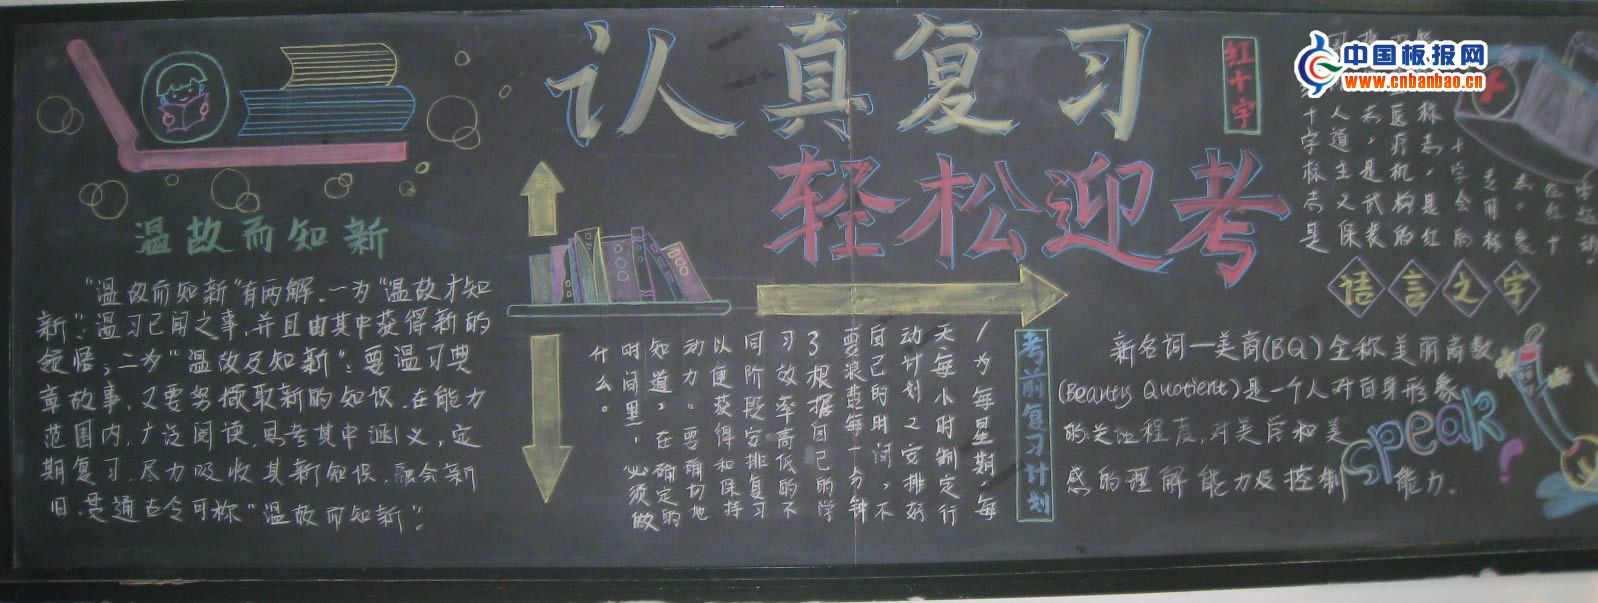 认真复习
轻松迎考
温故而知新
"温故而知新"有两解.一为"温故才知
新":温习已闻之事,并且由其中获得新的
领悟;二为"温故及知新":要温习典
章故事,又要努撷取新的知识.在能力
范围内,广泛阅读,思考其中涵义,定
期复习.尽力吸收其新知识.融会新
旧.贯通古今可称"温故而知新".
考前复习计划
1为每星期,每
天,每小时制定行
动计划之安排好
自己的时间,不
要浪费每一分钟
3根据自己的学
习效率高低的不
同阶段安排复习
以便获得和保持
动力。要确切地
知道,在确定的
时间里,必须做
什么。
红十字
十字标志是
人道主义保
志,是武装
医疗机构的
标志,是红
十字会的
专用标
志。象
征红十
字运动
语言之字
新名词一美商(BQ)全称美丽商数
(Beauty Quotient)是一个人对自身形象
的关注程度,对美学和美
感的理解能力及控制能力.
speak
?
中国板报网
www.cnbanbao.cn